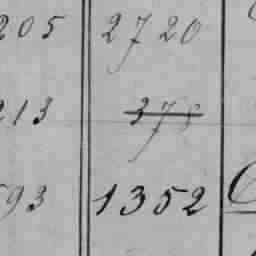 205 2720
213
93 1352